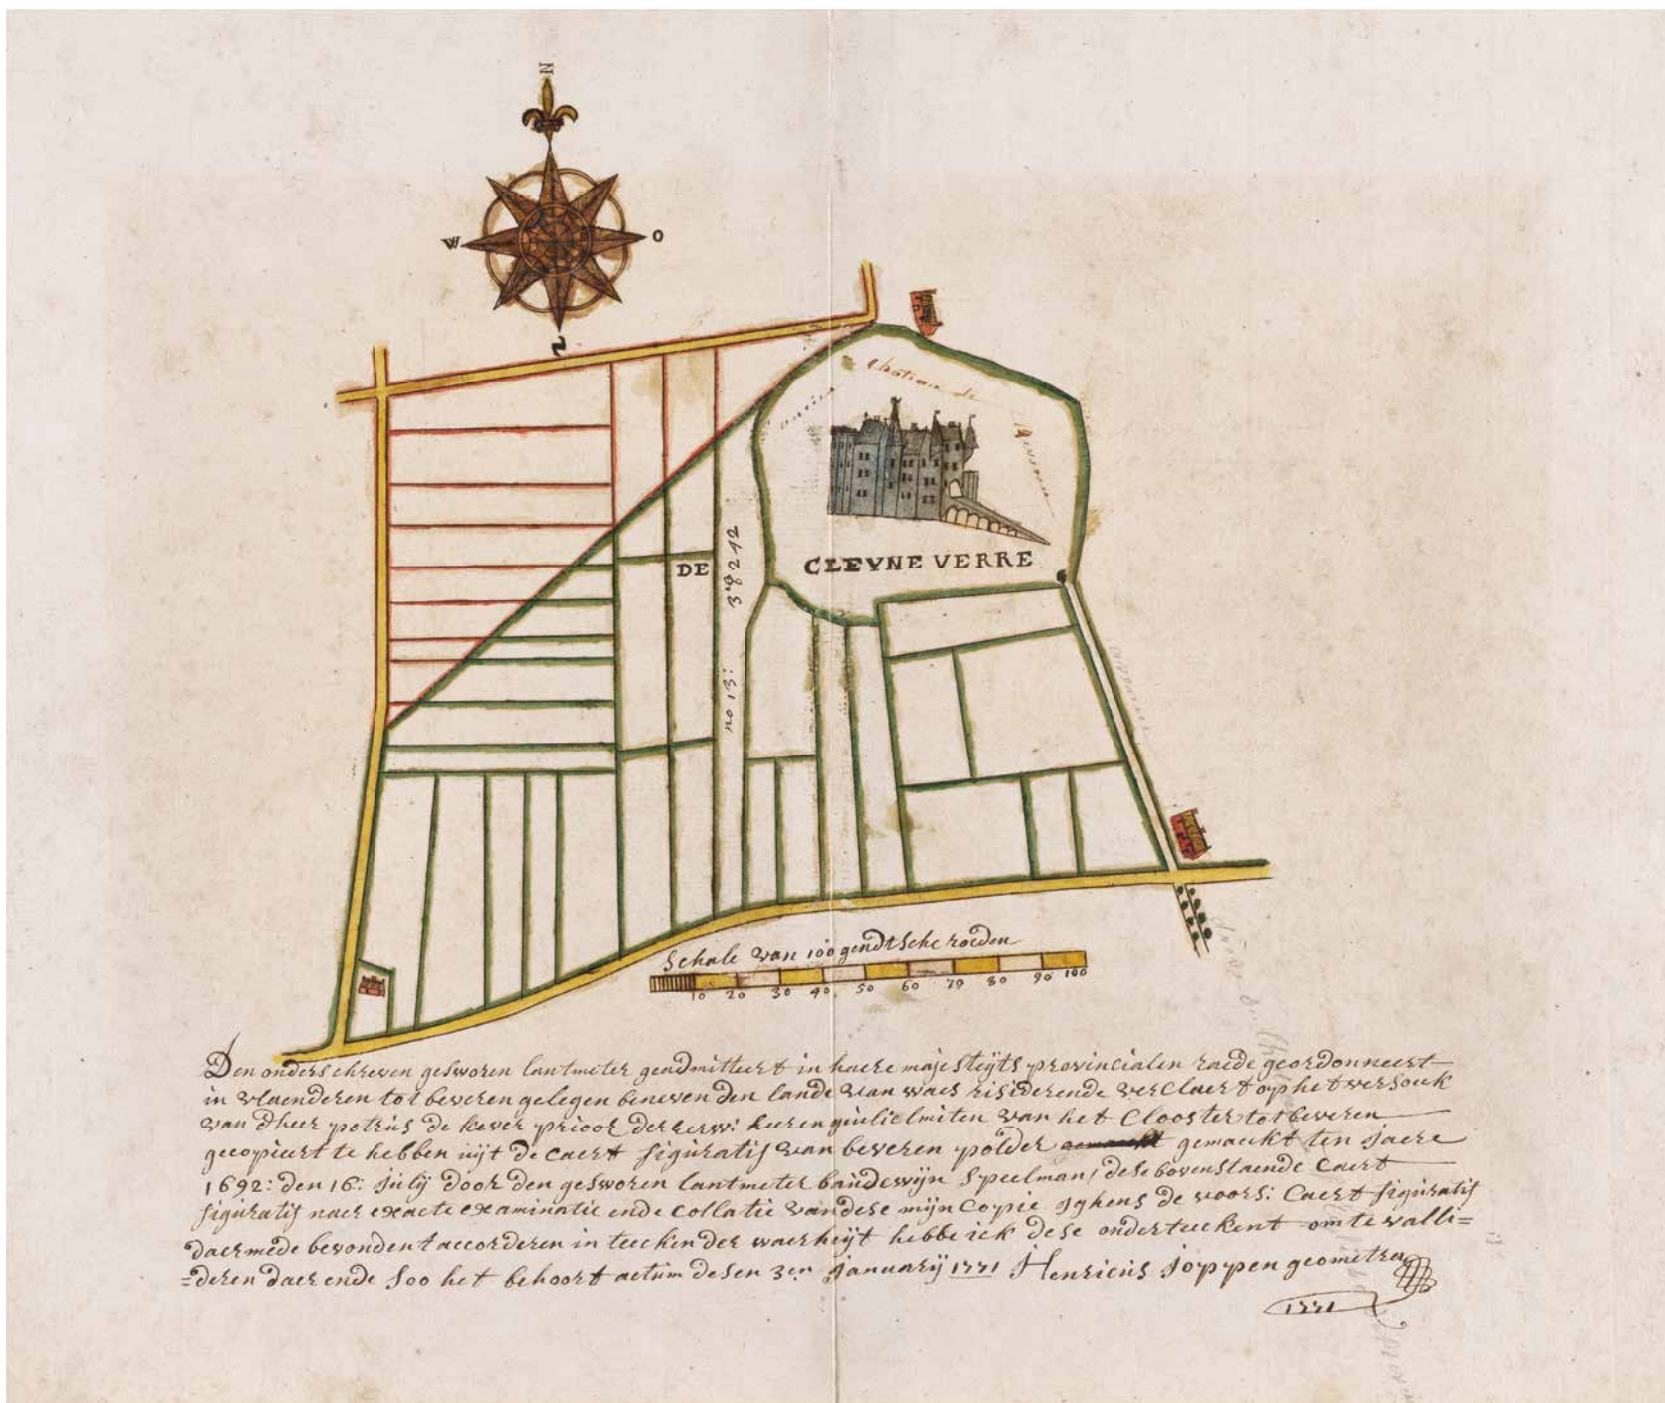 N
W
O
Z
Chateau de
DE
CLEYNE VERRE
no 13:
Schale van 100 gendtsche roeden
10 20 30 40 50 60 70 80 90 100
Den onderschreven gesworen lantmeter geadmitteert in haere majesteyts provincialen raede geordonneert
in vlaenderen tot beveren gelegen beneven den lande van waes risiderende verClaert op het versouk
van dheer petrus de kever prioor der eerw: heeren guilielmiten van het Clooster tot beveren
gecopieert te hebben uijt de Caert figuratif van beveren polder gemaeckt ten jaere
1692: den 16: julij door den gesworen lantmeter baudewijn Speelman, dese bovenstaende Caert
figuratif naer exacte examinatie ende Collatie van dese mijn Copie jghens de voors: Caert figuratif
daermede bevonden t accorderen in teecken der waerheijt hebbe ick dese onderteeckent om te valli=
=deren daer ende soo het behoort actum desen 3en januarij 1771 Henricus joppen geometra
1771